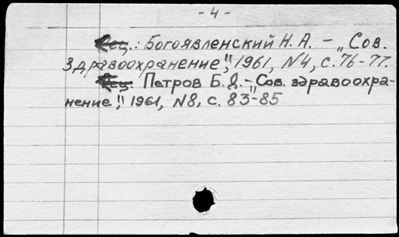 - 4 -
Рец.: Богоявленский Н.А. – „Сов.
здравоохранение", 1961, №4, с. 76-77.
Рец. Петров Б.Д. – „Сов. здравоохра-
нение", 1961, №8, с. 83-85